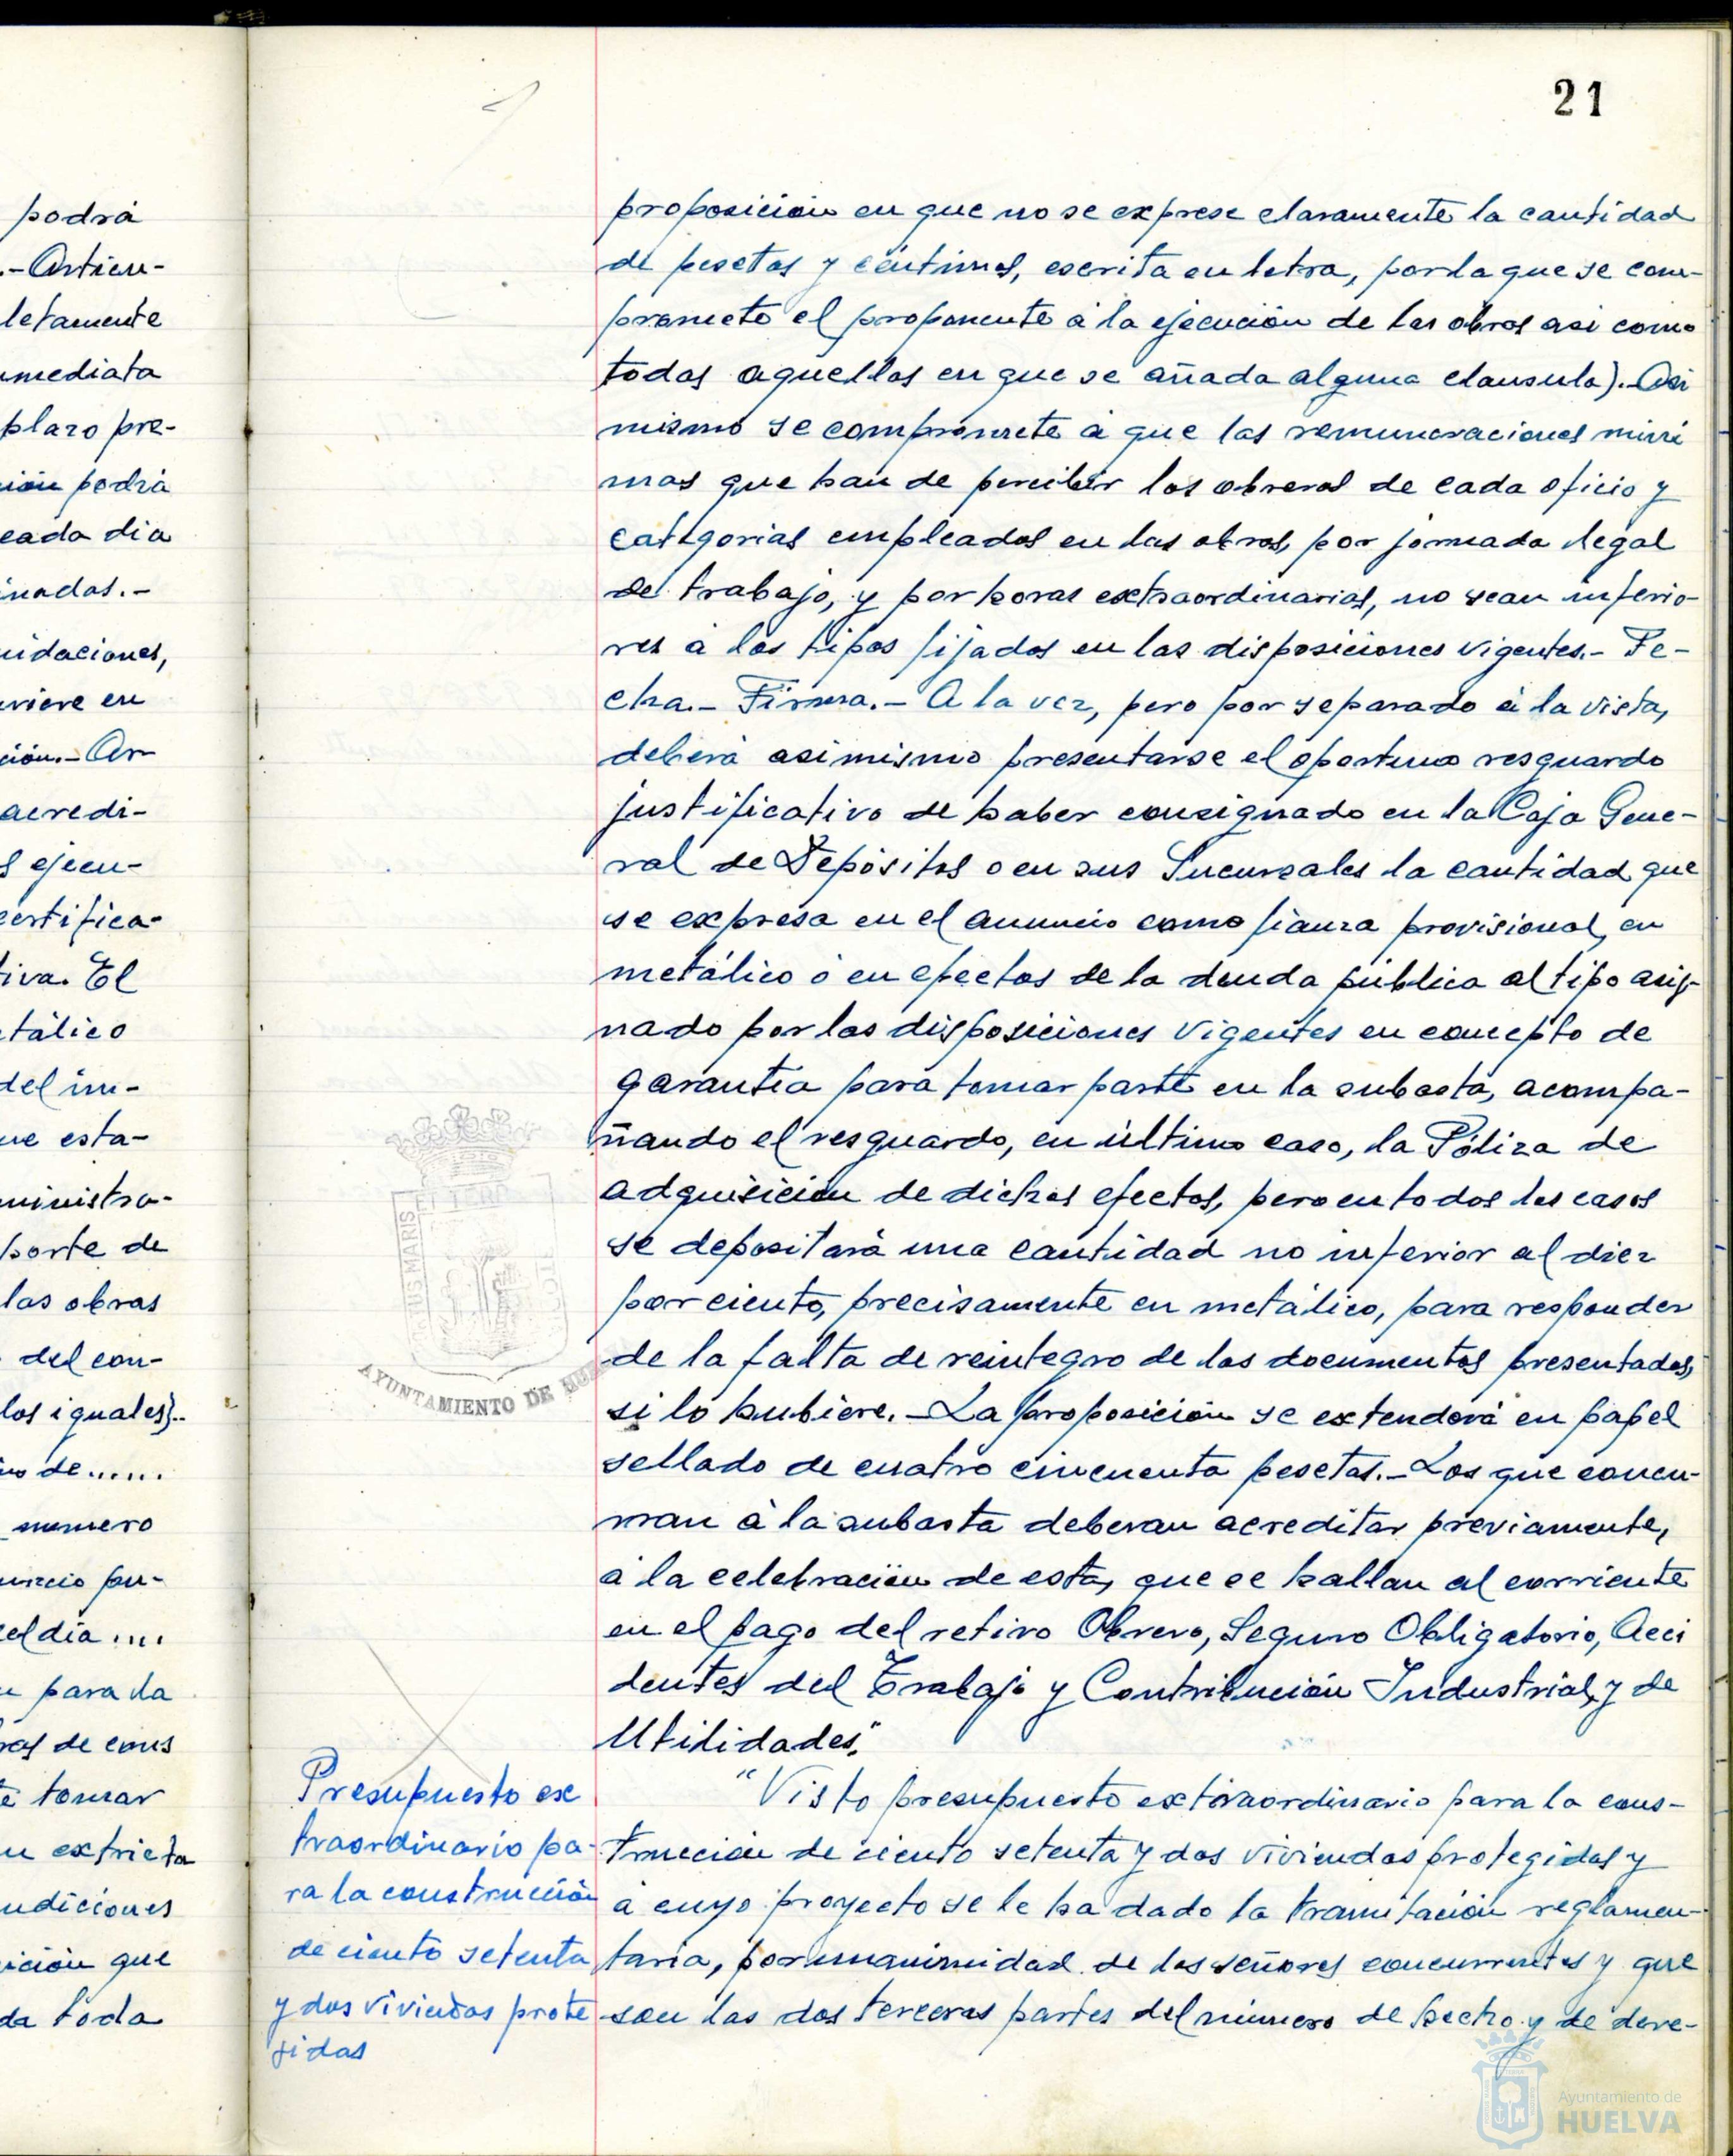 21
podrá
.- Articu-
letamente
nmediata
plazo pre-
ción podrá
cada dia
inadas.-
uidaciones,
uviere en
ción.- Ar-
acredi-
s ejecu-
certifica-
tiva. El
etálico
del im-
ue esta-
ministra-
porte de
las obras
del con-
los iguales).-
no de......
numero
uncio pu-
el dia ....
n para la
ras de cons
e tomar
n extricta
ndiciones
sición que
da toda
proposición en que no se exprese claramente la cantidad
de pesetas y céntimos, escrita en letra, por la que se com-
promete el proponente á la ejecución de las obras asi como
todas aquellas en que se añada alguna clausula).- Asi
mismo se compromete á que las remuneraciones mini
mas que han de percibir los obreros de cada oficio y
categorias empleados en las obras, por jornada legal
de trabajo, y por horas extraordinarias, no sean inferio-
res á los tipos fijados en las disposiciones vigentes.- Fe-
cha.- Firma.- A la vez, pero por separado á la vista,
deberá asimismo presentarse el oportuno resguardo
justificativo de haber consignado en la Caja Gene-
ral de Depósitos o en sus Sucursales la cantidad que
se expresa en el anuncio como fianza provisional, en
metálico ó en efectos de la deuda pública al tipo asig-
nado por las disposiciones vigentes en concepto de
garantía para tomar parte en la subasta, acompa-
ñando el resguardo, en último caso, la Póliza de
adquisición de dichos efectos, pero en todos los casos
se depositará una cantidad no inferior al diez
por ciento, precisamente en metálico, para responder
de la falta de reintegro de los documentos presentados,
si lo hubiere.- La proposición se extenderá en papel
sellado de cuatro cincuenta pesetas.- Los que concu-
rran á la subasta deberan acreditar previamente,
á la celebración de esta, que se hallan al corriente
en el pago del retiro Obrero, Seguro Obligatorio, Acci
dentes del Trabajo y Contribución Industrial y de
Utilidades."
Presupuesto ex
traordinario pa-
ra la construcción
de ciento setenta
y dos viviendas prote
gidas
"Visto presupuesto extraordinario para la cons-
trucción de ciento setenta y dos viviendas protegidas y
á cuyo proyecto se le ha dado la tramitación reglamen-
taria, por unanimidad de los señores concurrentes y que
son las dos terceras partes del número de hecho y de dere-
AYUNTAMIENTO DE HUE
Ayuntamiento de
HUELVA